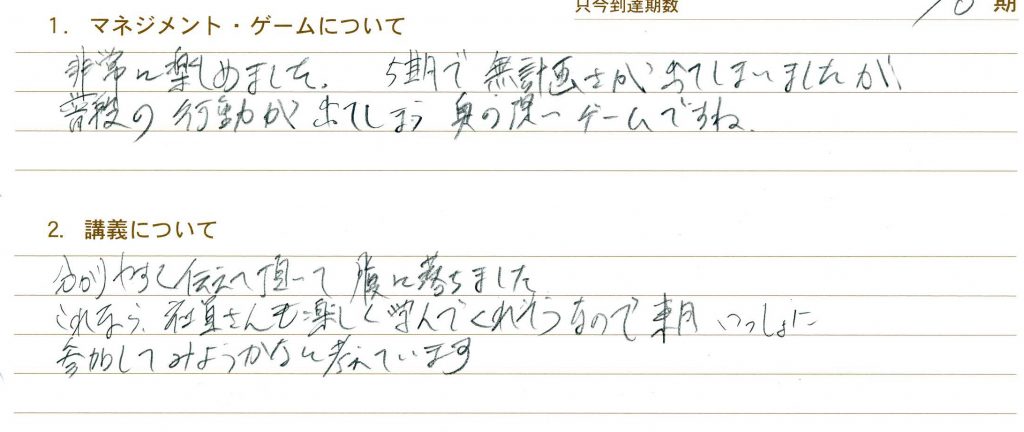 只今到達期数 10 期
1. マネジメント・ゲームについて
非常に楽しめました。 5期で無計画さが出てしまいましたが
普段の行動が出てしまう奥の深いゲームですね。
2. 講義について
分かりやすく伝えて頂いて腹に落ちました
これなら、社員さんも楽しく学んでくれそうなので来月いっしょに
参加してみようかなと考えています